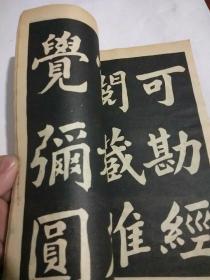 可勘經
閱藏惟
覺彌圓